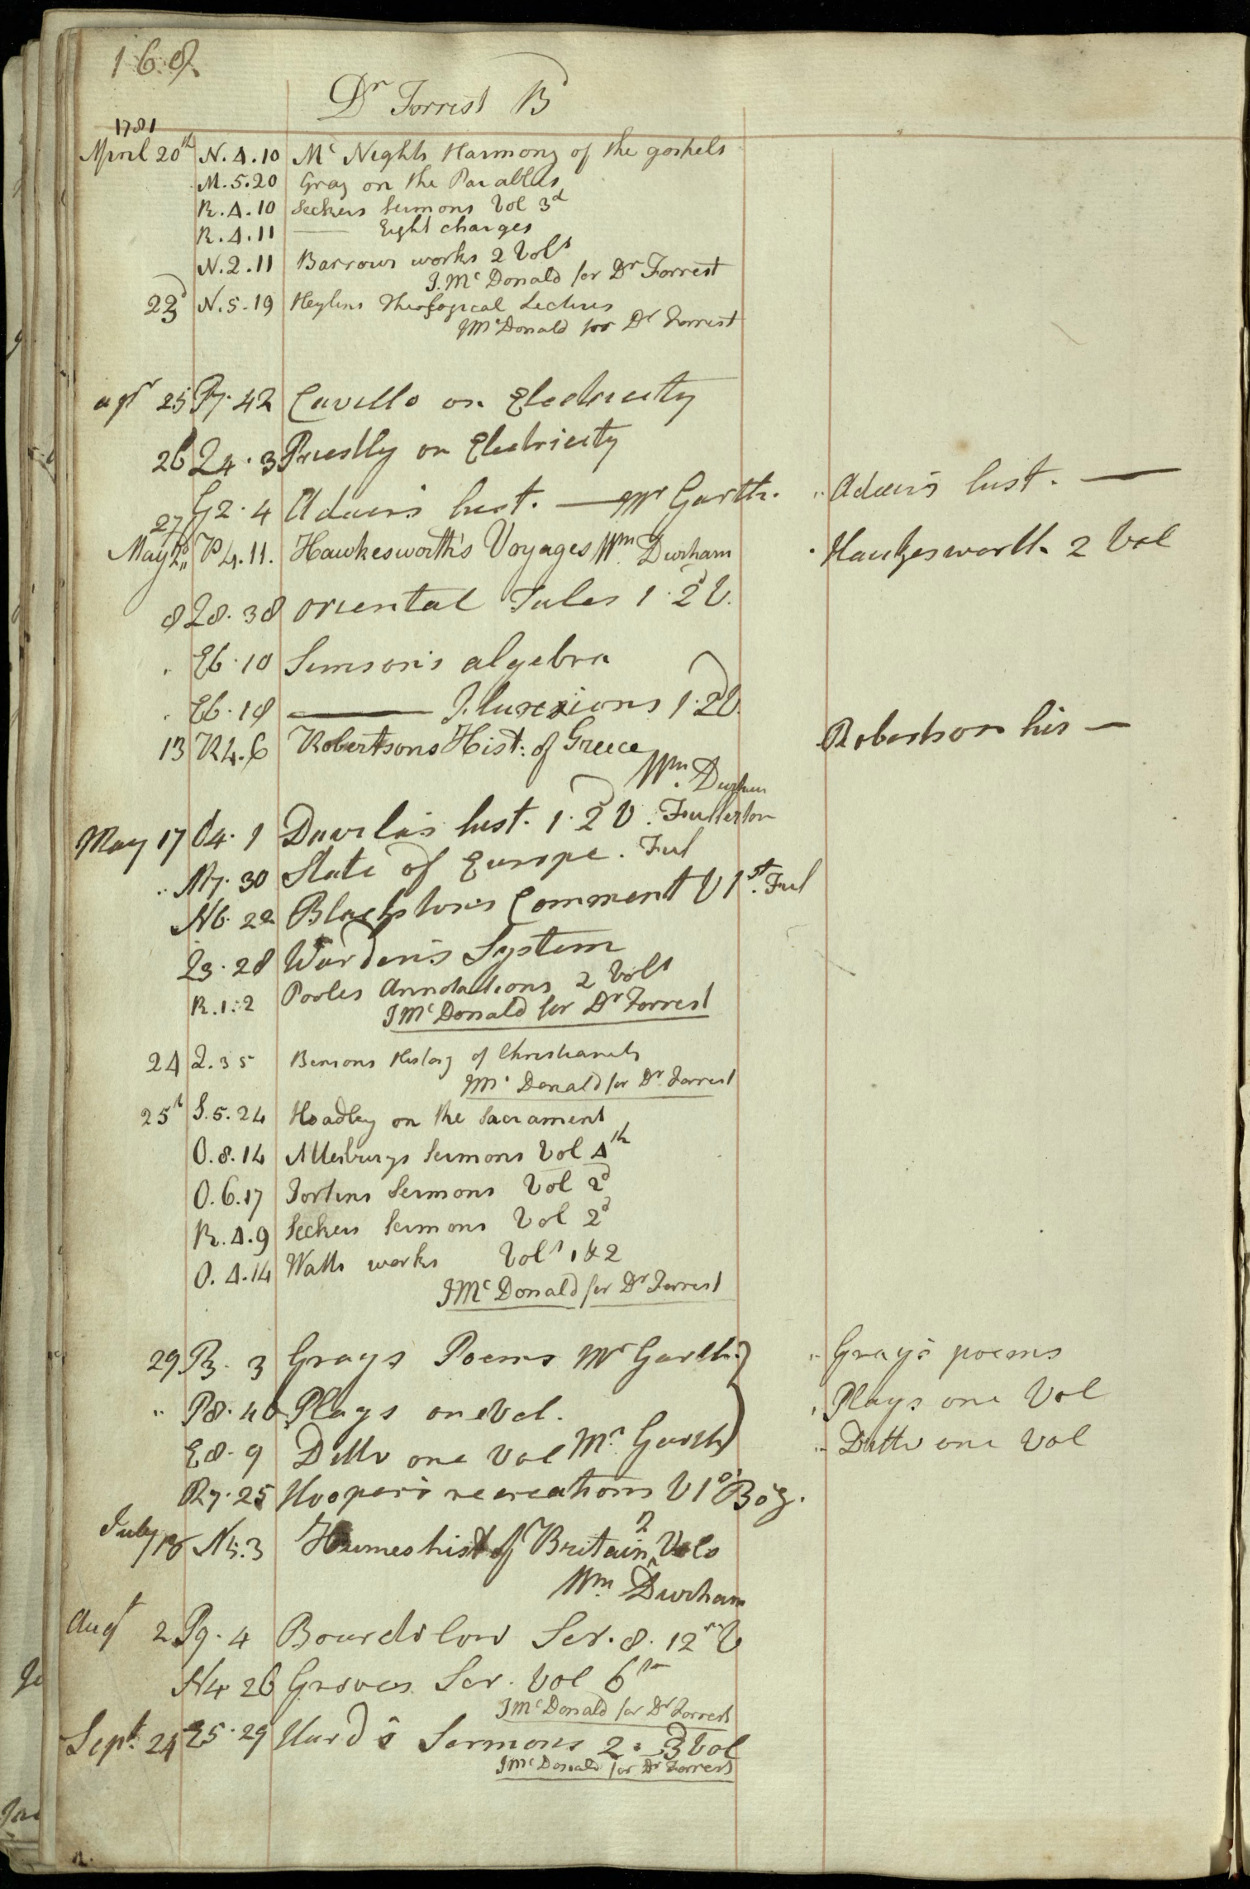 168
Dr Forrest B
1781
April 20th N.4.10 Mc Nights Harmony of the gospels
M.5.20 Gray on the Parables
R.4.10 Seckers Sermons Vol 3d
R.4.11 —— Eight charges
N.2.11 Barrows works 2 Vols
J. Mc Donald for Dr Forrest
23d N.5.19 Heylins Theological Lectures
J Mc Donald for Dr Forrest
25 P7.42 Cavello on Electricity
26 Q4.3 Priestly on Electricity
27 G2.4 Adair's hist. — Mr Garth. Adair's hist. —
May 2d P4.11. Hawkesworth's Voyages Wm Durham Hawkesworth 2 Vol
8 Q8.38 Oriental Tales 1.2d V.
E6.10 Simson's algebra
E6.18 —— Fluxions 1.2d V
13 R4.6 Robertsons Hist: of Greece Robertson his —
Wm. Durham
May 17 O4.1 Davila's hist. 1.2d V. Fullerton
M7.30 State of Europe. Ful
N6.22 Blackston's Comment V 1st. Ful
Q3.28 Warden's System
R.1.2 Pooles Annotations 2 Vols
J Mc Donald for Dr Forrest
24 Q.35 Bensons History of Christianity
J Mc Donald for Dr Forrest
25th S.5.24 Hoadley on the Sacrament
O.8.14 Atterburys Sermons Vol 4th
O.6.17 Jortins Sermons Vol 2d
R.4.9 Seckers Sermons Vol 2d
O.4.14 Watts works Vols 1 & 2
J Mc Donald for Dr Forrest
29 P3.3 Grays Poems Mr Garth. Gray's poems
P8.40 Plays one Vol. Plays one Vol
E8.9 Ditto one Vol Mr Garth Ditto one Vol
R7.25 Hooper's recreations V 1st
July 18 N5.3 Humes hist of Britain 2 Vols
Wm. Durham
Augt 2 P9.4 Bourdilow Ser. 8. 12mo V
N4 26 Groves Ser. Vol 6th
J Mc Donald for Dr Forrest
Sept. 24 E5.29 Hurd's Sermons 2. 3d Vol
J Mc Donald for Dr Forrest